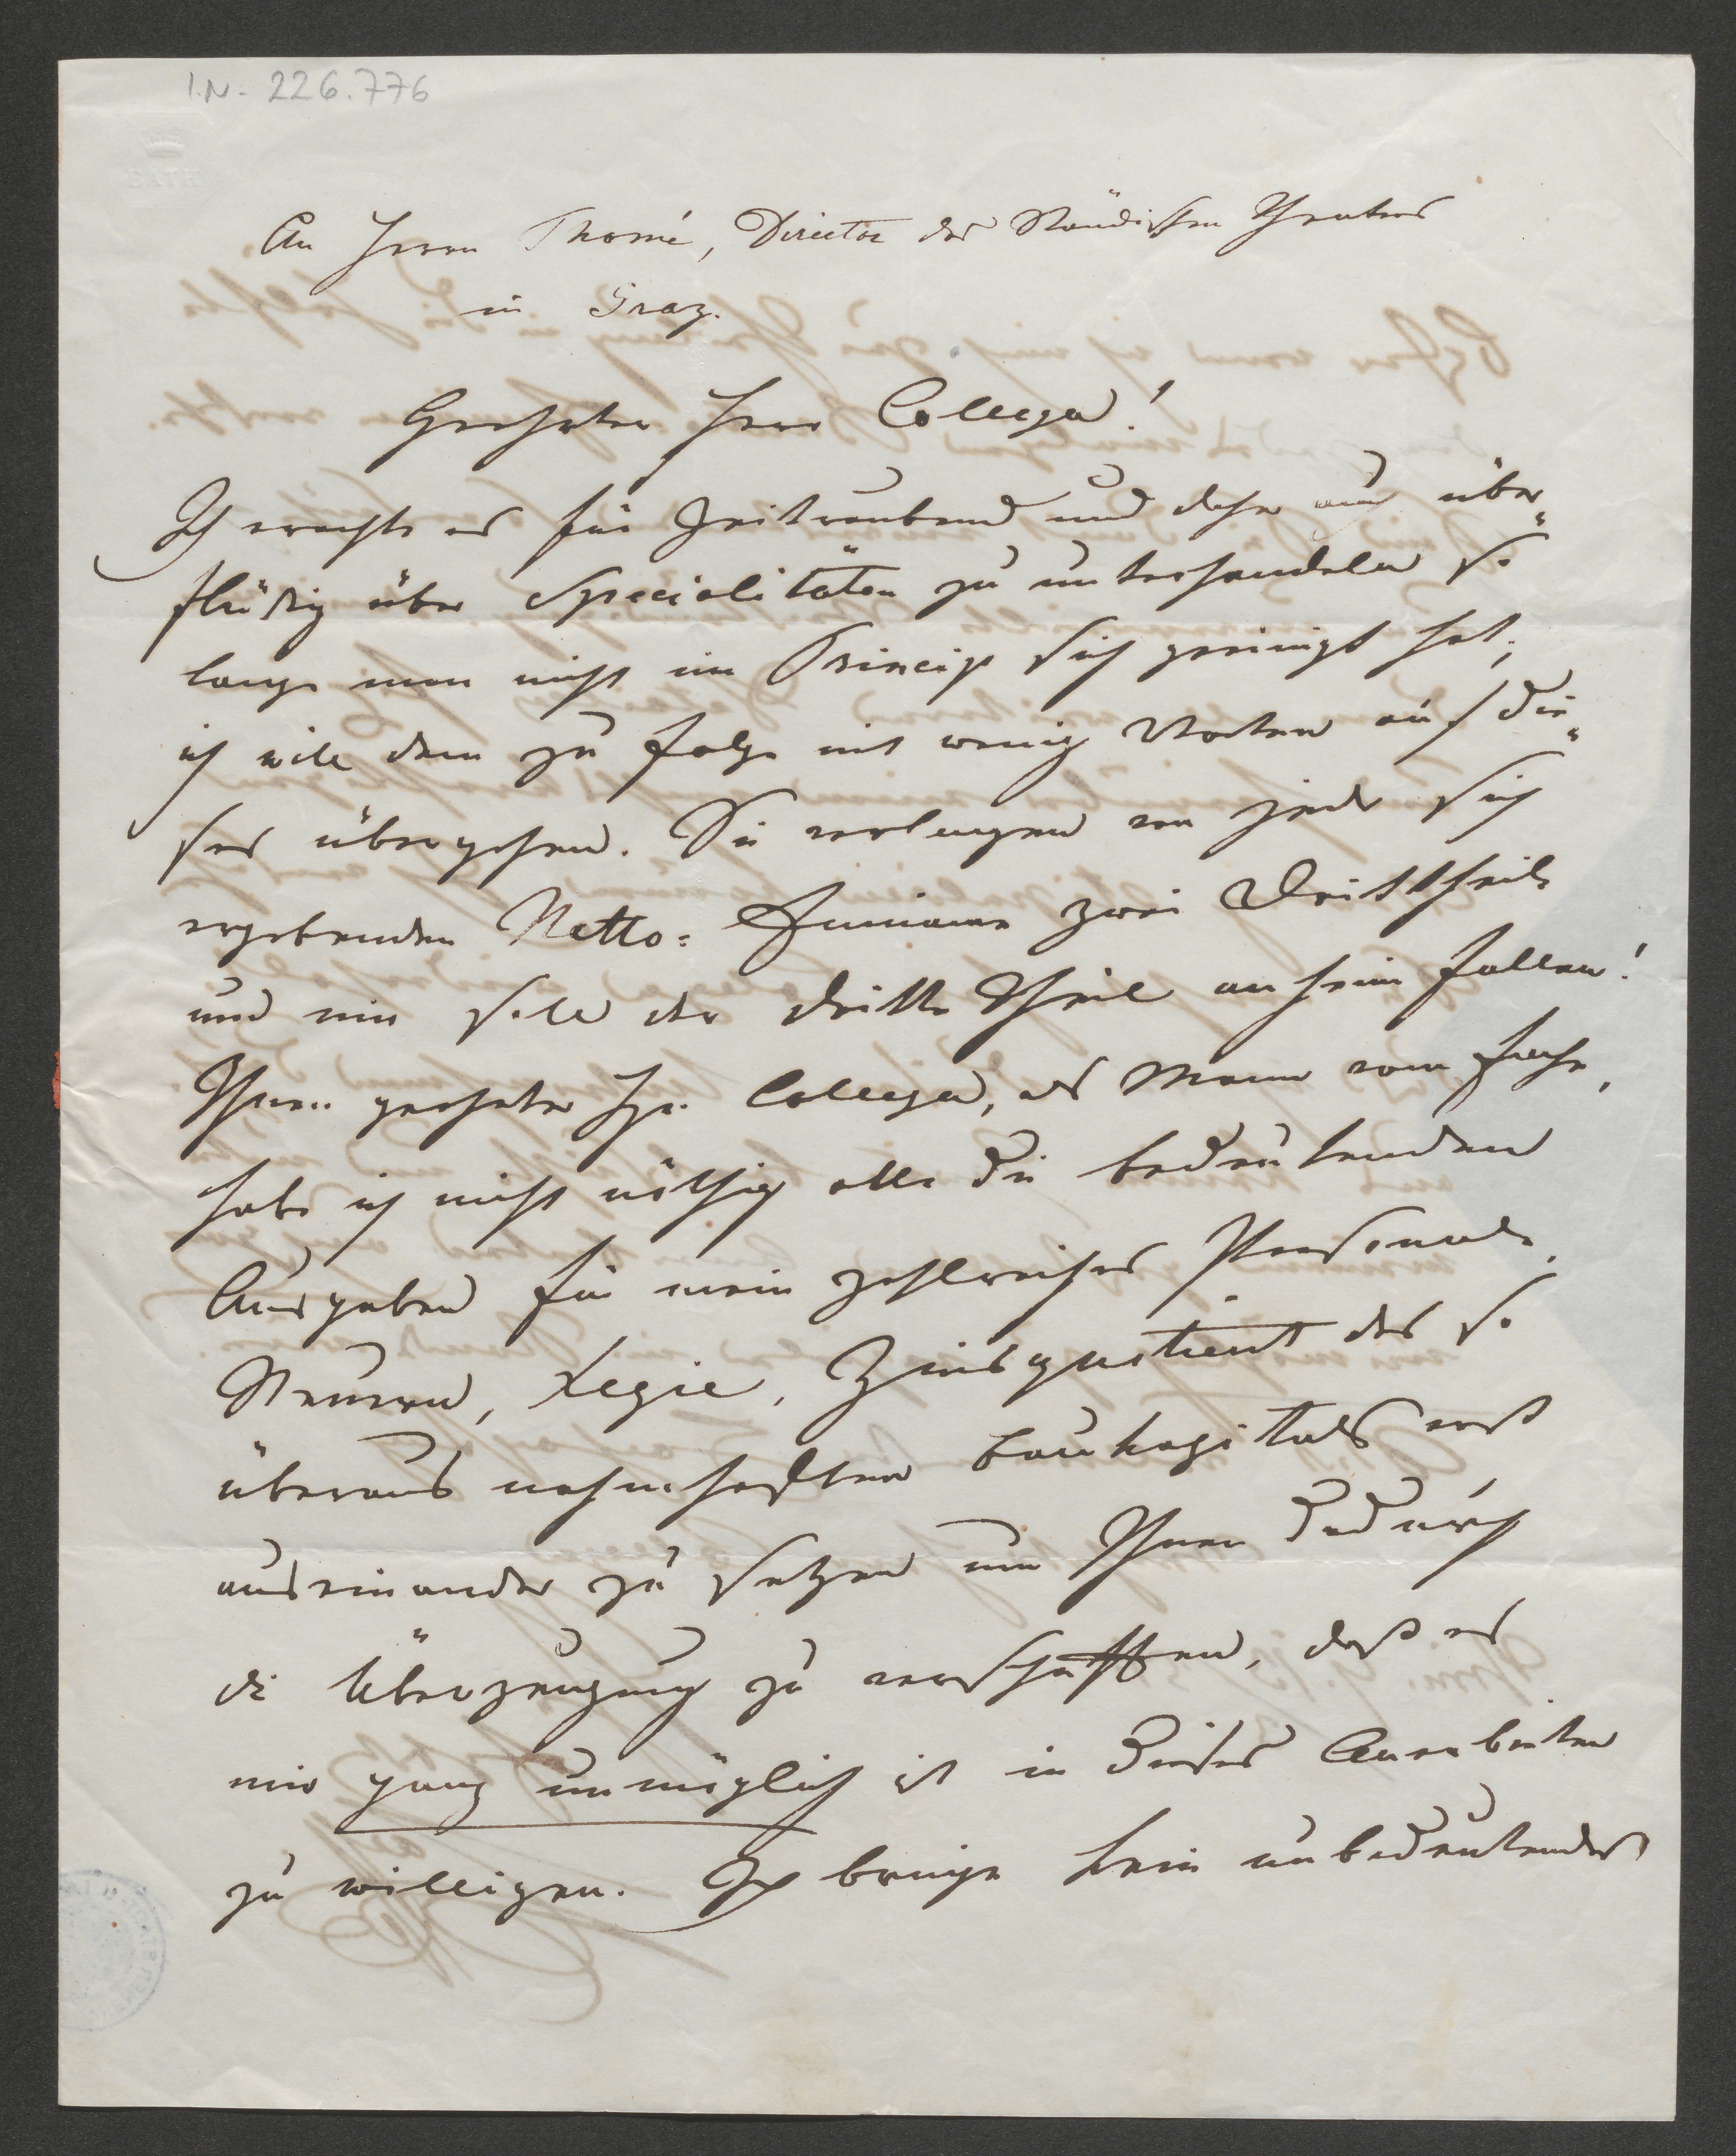 I.N. 226.776
An Herrn Thomé, Director des Ständischen Theaters
in Graz.
Geehrter Herr Collega!
Ich erachte es für Zeitraubend und daher auch über„
flüßig über Specialitäten zu unterhandeln so
lange man nicht im Princip sich geeinigt hat;
ich will dem zu folge mit wenig Worten auf die„
ses übergehen. Sie verlangen von jeder sich
ergebenden Netto-Einnahme zwei Drittheile
und mir soll der dritte Theil anheim fallen!
Ihnen geehrter Hr. Collega, als Mann vom Fache,
habe ich nicht nöthig alle die bedeutenden
Ausgaben für mein zahlreiches Personale,
Steuern, Regie, Zinsquotient des so
überaus nahmhaften Baukapitals erst
auseinander zu setzen um Ihnen dadurch
die Überzeugung zu verschaffen, daß es
mir ganz unmöglich ist in dieses Anerbieten
zu willigen. Ich bringe kein unbedeutendes